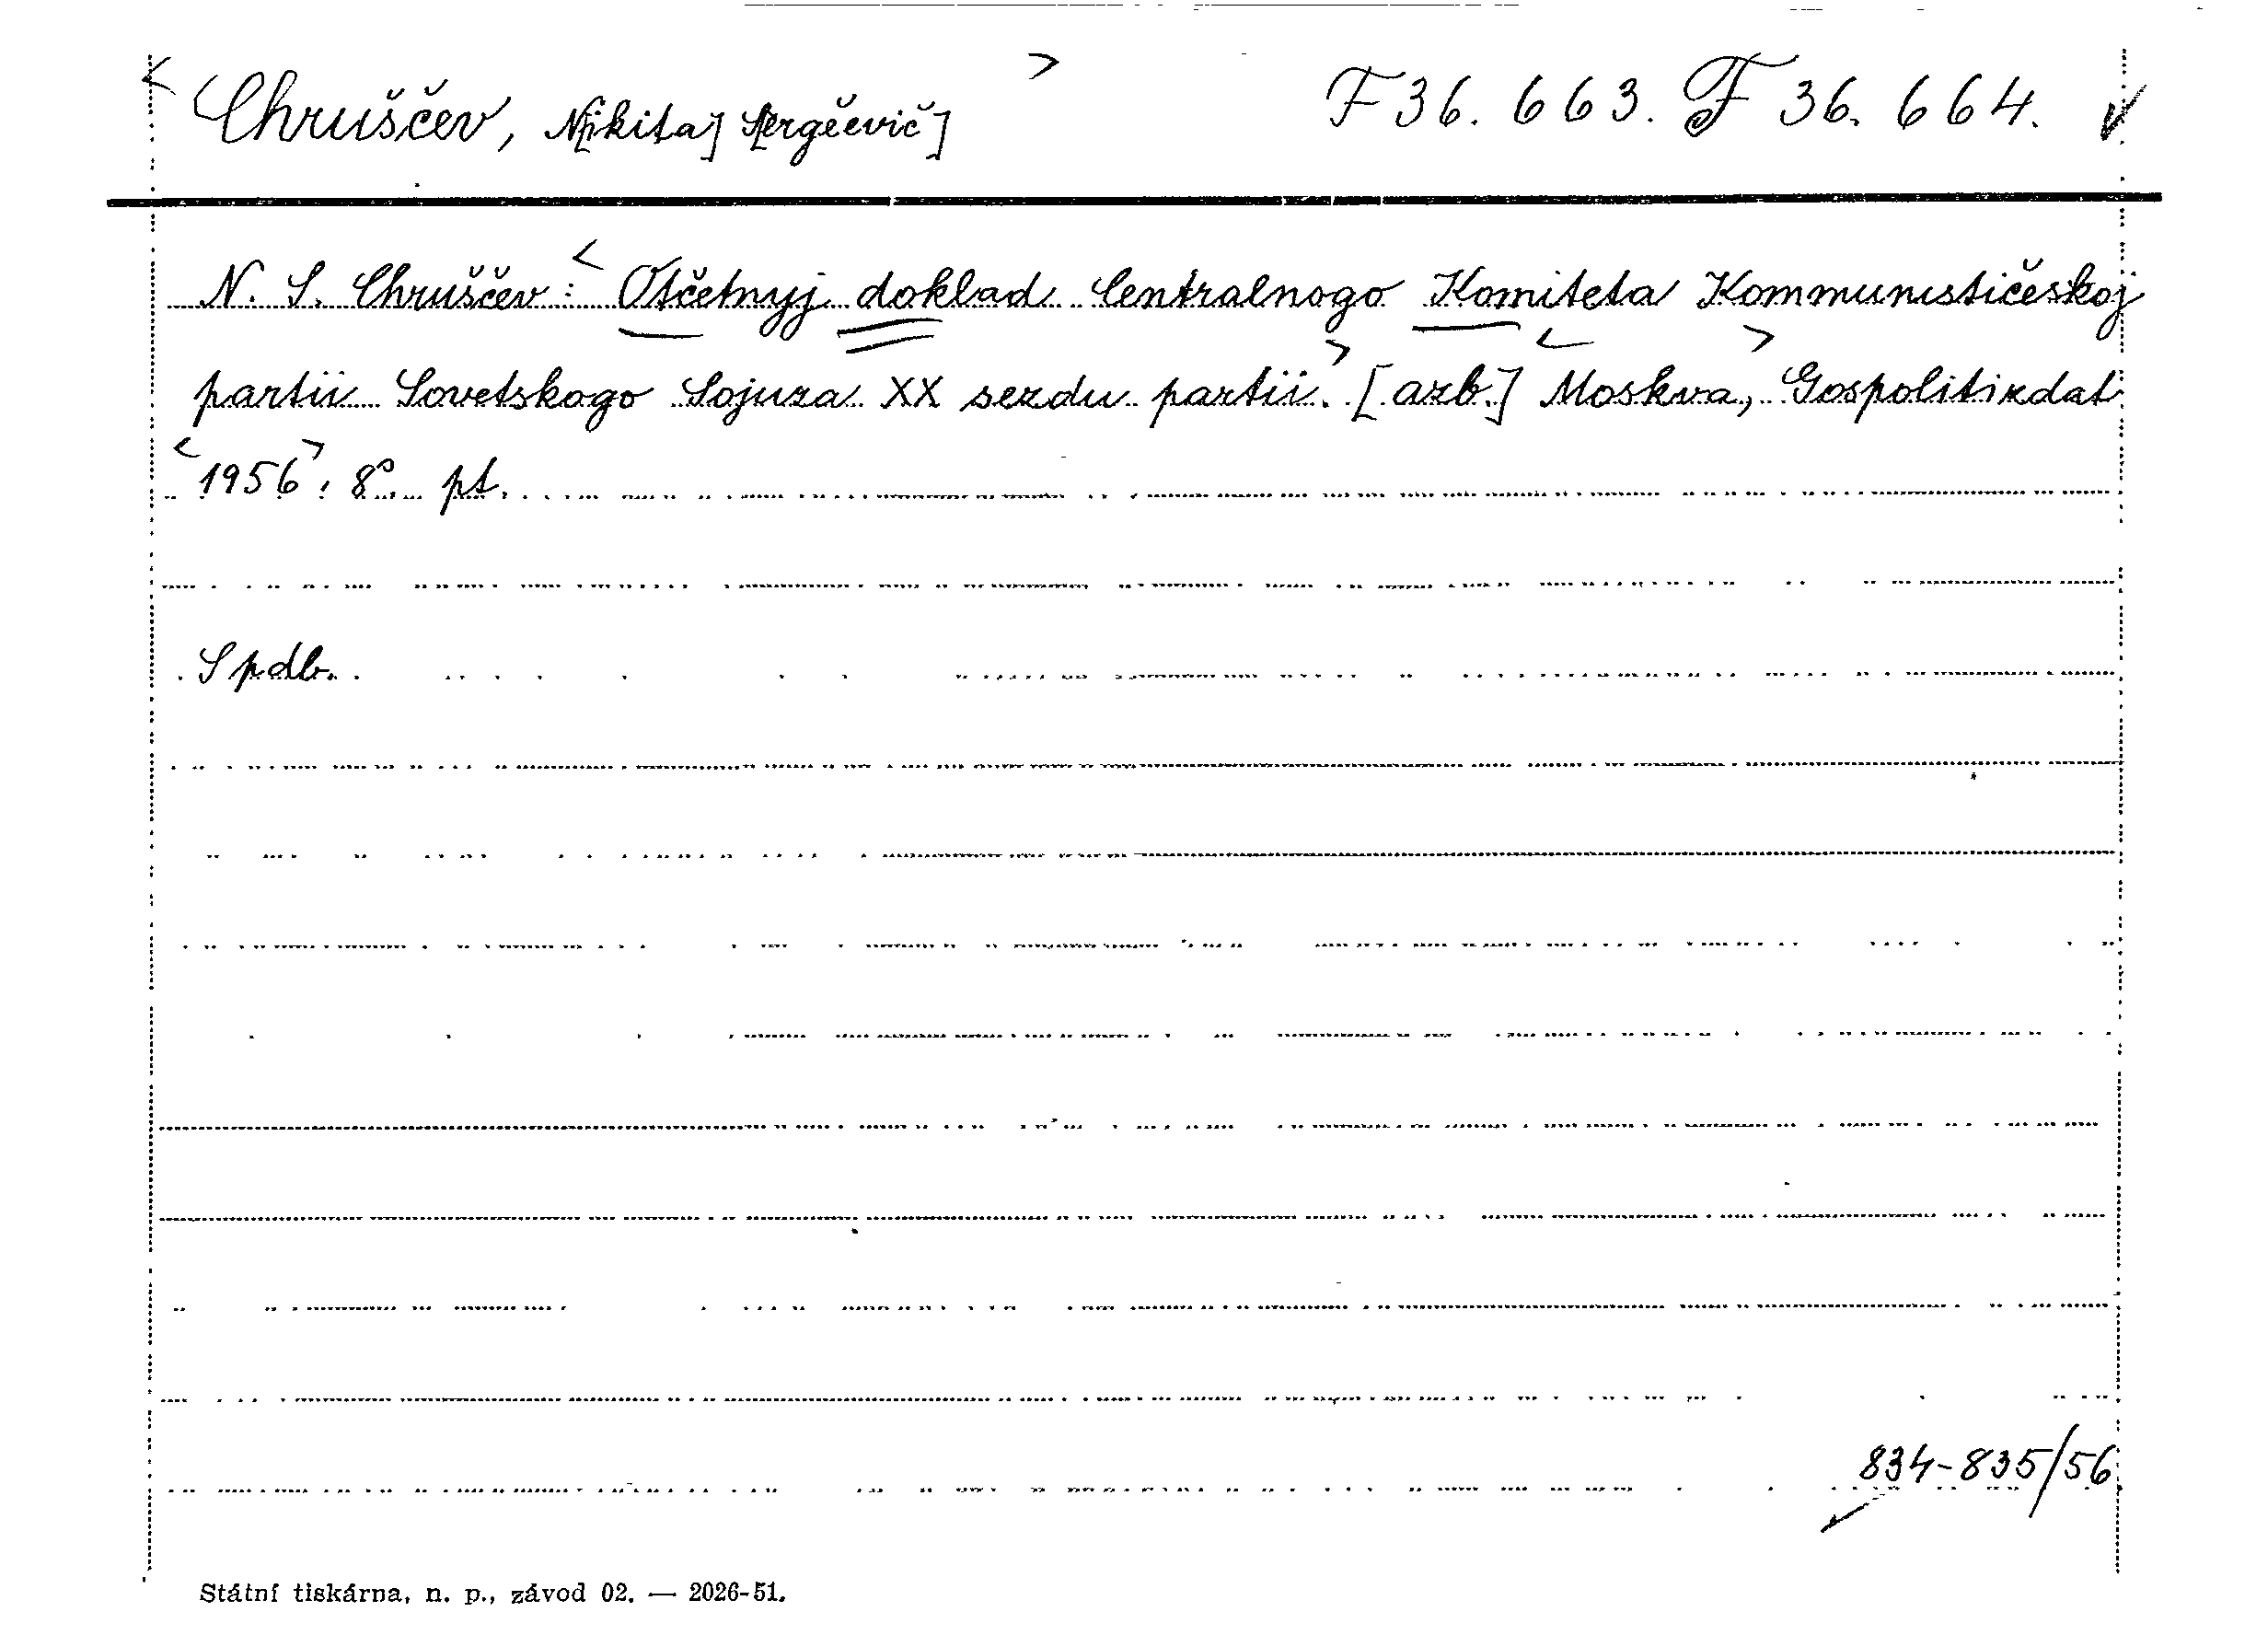 < Chruščev, N[ikita] S[ergěevič] > F 36.663. F 36.664.
N. S. Chruščev: < Otčetnyj doklad Centralnogo Komiteta Kommunističeskoj
partii Sovetskogo Sojuza XX sezdu partii. > [azb.] < Moskva, > Gospolitizdat
< 1956 >. 8°. pt.
Spdb.
834-835/56
Státní tiskárna, n. p., závod 02. — 2026-51.